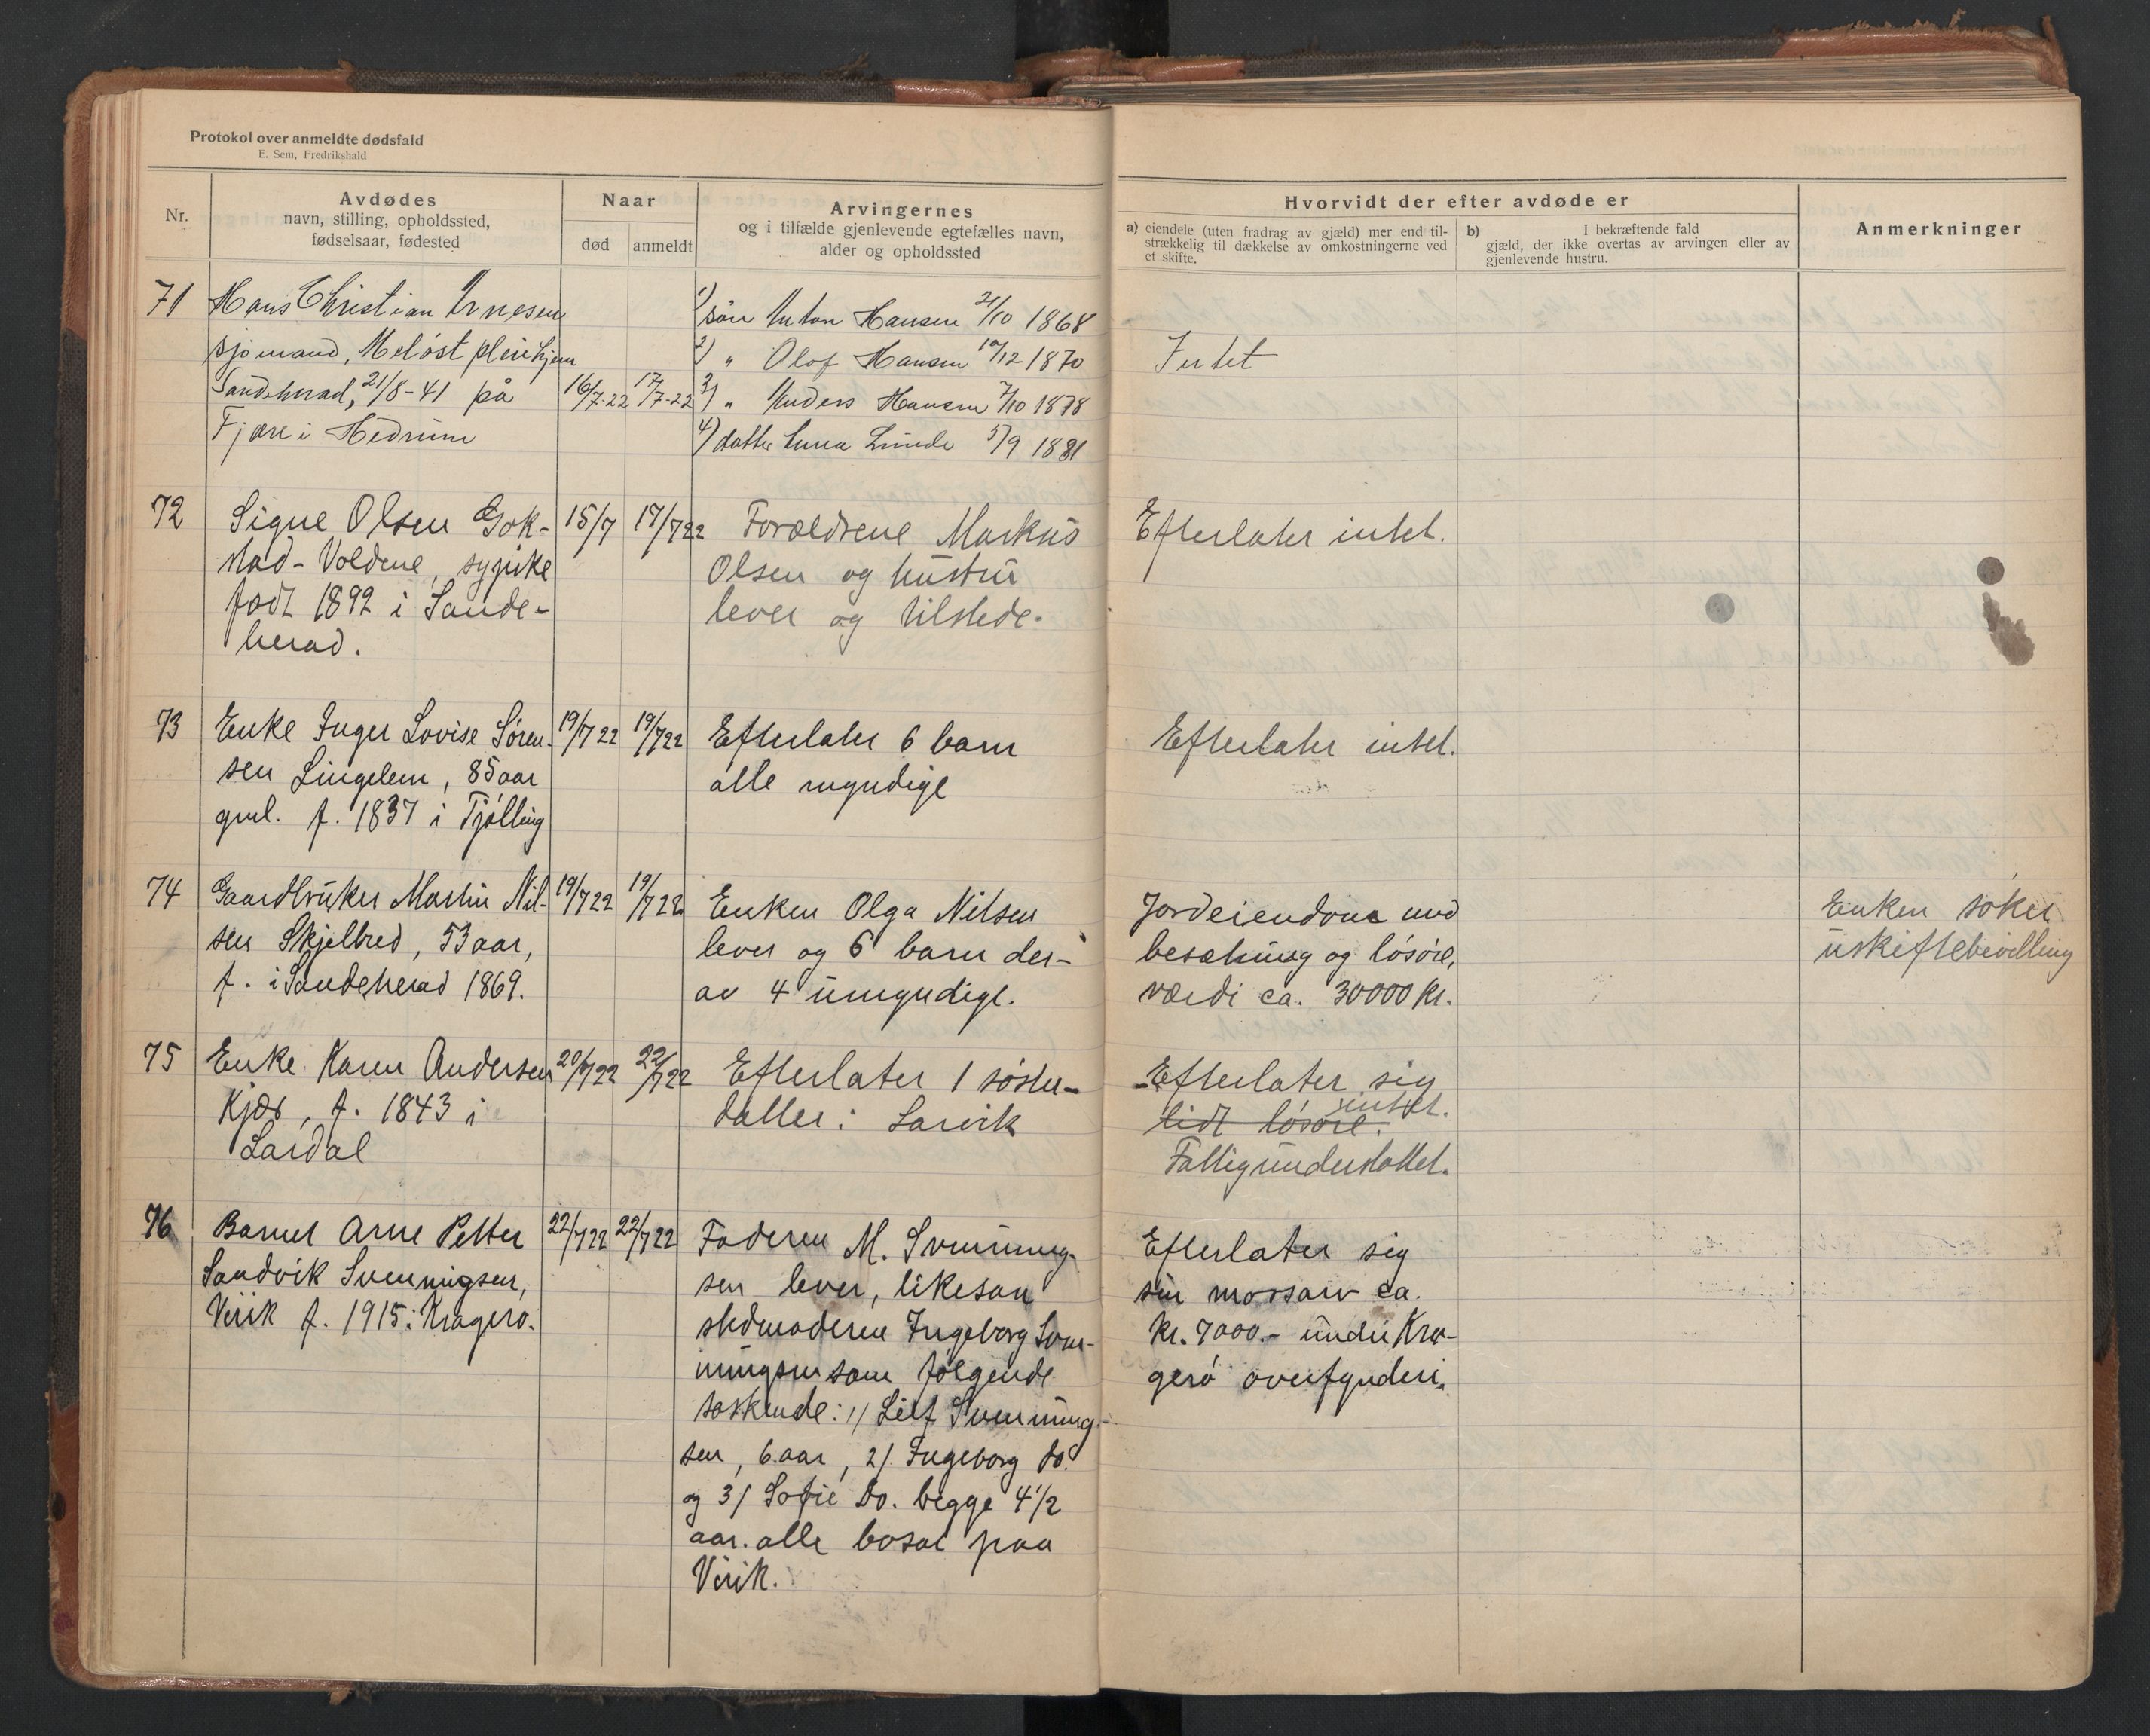 Protokol over anmeldte dødsfald
E. Sem, Fredrikshald
Nr.
Avdødes
navn, stilling, opholdssted,
fødselsaar, fødested
Naar
død
anmeldt
Arvingernes
og i tilfælde gjenlevende egtefælles navn,
alder og opholdssted
Hvorvidt der efter avdøde er
a) eiendele (uten fradrag av gjæld) mer end til-
strækkelig til dækkelse av omkostningerne ved
et skifte.
b) I bekræftende fald
gjæld, der ikke overtas av arvingen eller av
gjenlevende hustru.
Anmerkninger
71
Hans Christian Arnesen
sjømand, Meløst pleiehjem
Sandeherad, 21/8-41 på
Fjære i Hedrum
16/7-22
17/7-22
1) søn Anton Hansen 21/10 1868
2) " Olof Hansen 10/12 1870
3) " Anders Hansen 7/10 1878
4) datter Anna Lunde 5/9 1881
Intet
72
Signe Olsen Gok-
stad-Voldene, sypike
født 1892 i Sande-
herad.
15/7
17/7 22
Forældrene Markus
Olsen og hustru
lever og tilstede.
Efterlater intet.
73
Enke Inger Lovise Søren-
sen Lingelem, 85 aar
gml. f. 1837 i Tjølling
19/7 22
19/7 22
Efterlater 6 barn
alle myndige
Efterlater intet.
74
Gaardbruker Martin Nil-
sen Skjelbred, 53 aar,
f. i Sandeherad 1869.
19/7 22
19/7 22
Enken Olga Nilsen
lever og 6 barn der-
av 4 umyndige.
Jordeiendom med
besætning og løsøre,
værdi ca. 30000 kr.
Enken søker
uskiftebevilling
75
Enke Karen Andersen
Kjær, f. 1843 i
Lardal
20/7 22
22/7 22
Efterlater 1 søster-
datter i Larvik
Efterlater sig
intet.
lidt løsøre.
Fattigunderstøttet.
76
Barnet Arne Petter
Sandvik Svenningsen,
Virik f. 1915 i Kragerø.
22/7 22
22/7 22
Faderen M. Svenning-
sen lever, likesaa
stedmoderen Ingeborg Sven-
ningsen som følgende
søskende: 1) Leif Svenning-
sen, 6 aar, 2) Ingeborg do.
og 3) Sofie do. begge 4 1/2
aar. alle bosat paa
Virik.
Efterlater sig
sin morsarv ca.
kr. 7000.- under Kra-
gerø overformynderi.